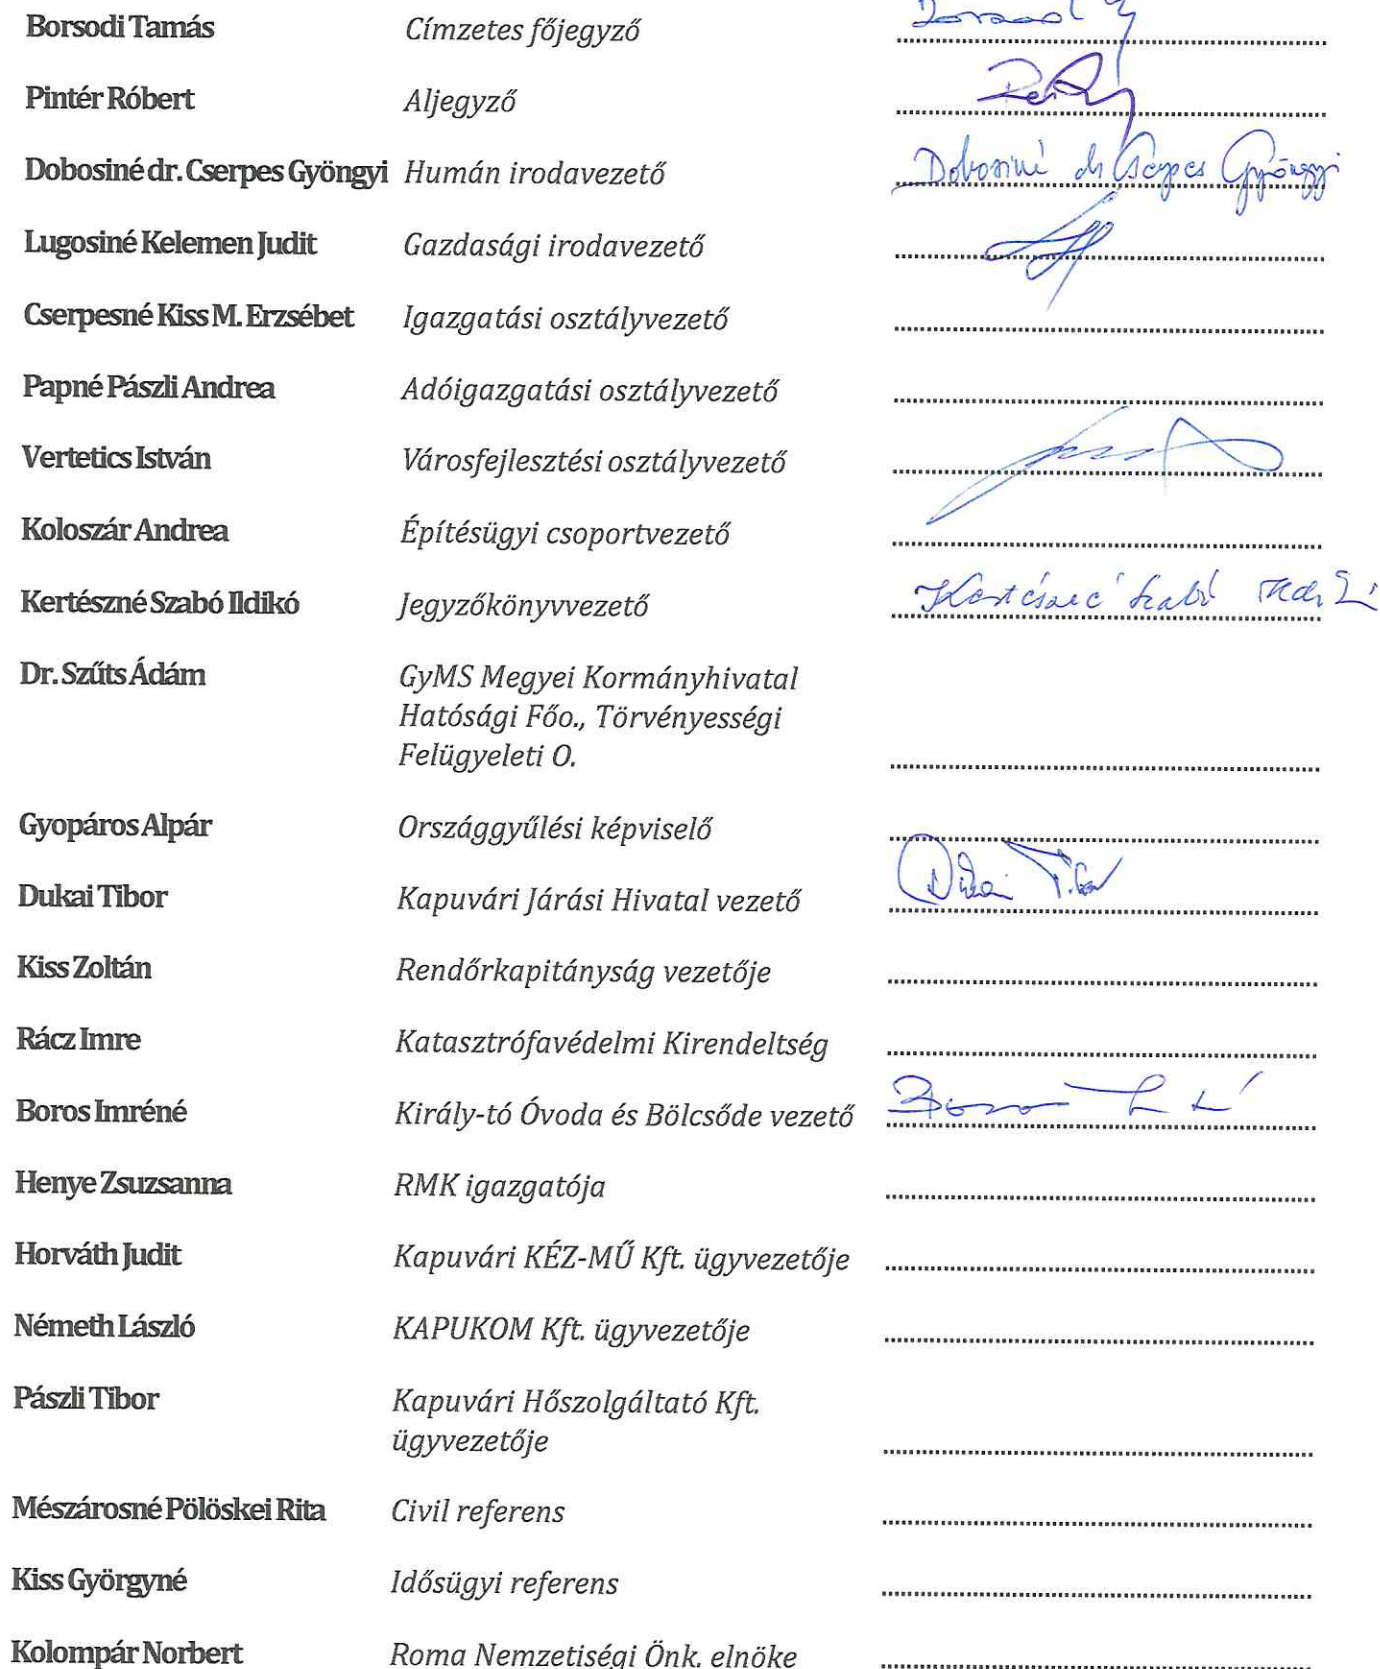 Borsodi Tamás Címzetes főjegyző
Pintér Róbert Aljegyző
Dobosiné dr. Cserpes Gyöngyi Humán irodavezető Dobosiné dr Cserpes Gyöngyi
Lugosiné Kelemen Judit Gazdasági irodavezető
Cserpesné Kiss M. Erzsébet Igazgatási osztályvezető
Papné Pászli Andrea Adóigazgatási osztályvezető
Vertetics István Városfejlesztési osztályvezető
Koloszár Andrea Építésügyi csoportvezető
Kertészné Szabó Ildikó Jegyzőkönyvvezető Kertészné Szabó Ildikó
Dr. Szűts Ádám GyMS Megyei Kormányhivatal
Hatósági Főo., Törvényességi
Felügyeleti O.
Gyopáros Alpár Országgyűlési képviselő
Dukai Tibor Kapuvári Járási Hivatal vezető Dukai Tibor
Kiss Zoltán Rendőrkapitányság vezetője
Rácz Imre Katasztrófavédelmi Kirendeltség
Boros Imréné Király-tó Óvoda és Bölcsőde vezető
Henye Zsuzsanna RMK igazgatója
Horváth Judit Kapuvári KÉZ-MŰ Kft. ügyvezetője
Németh László KAPUKOM Kft. ügyvezetője
Pászli Tibor Kapuvári Hőszolgáltató Kft.
ügyvezetője
Mészárosné Pölöskei Rita Civil referens
Kiss Györgyné Idősügyi referens
Kolompár Norbert Roma Nemzetiségi Önk. elnöke